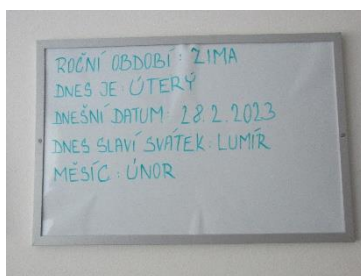 ROČNÍ OBDOBÍ: ZIMA
DNES JE: ÚTERÝ
DNEŠNÍ DATUM: 28.2.2023
DNES SLAVÍ SVÁTEK: LUMÍR
MĚSÍC: ÚNOR